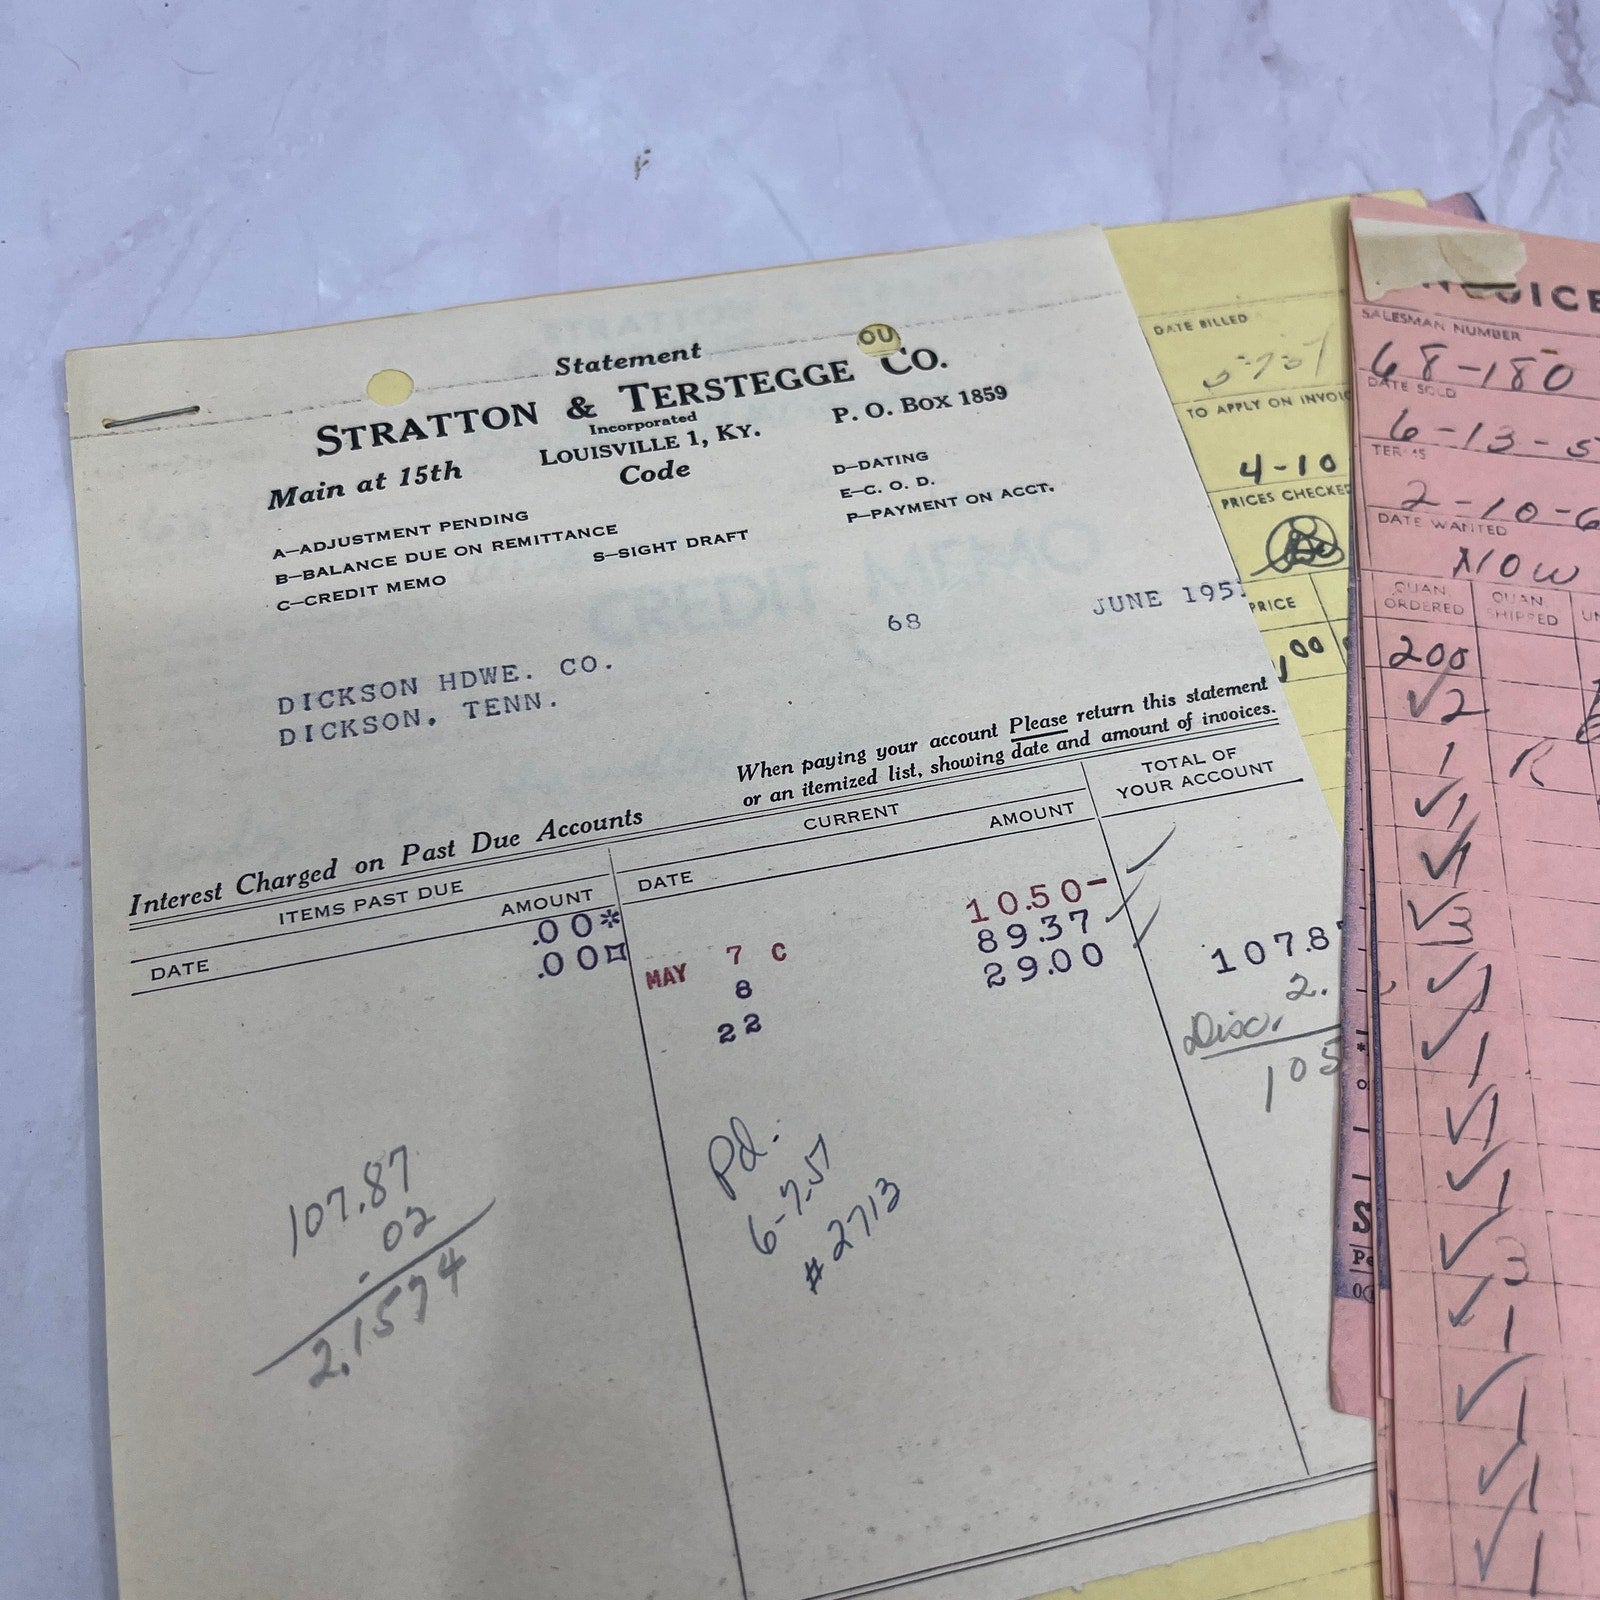 Statement
STRATTON & TERSTEGGE CO.
Incorporated
Main at 15th LOUISVILLE 1, KY. P. O. BOX 1859
Code
A—ADJUSTMENT PENDING
B—BALANCE DUE ON REMITTANCE
C—CREDIT MEMO
S—SIGHT DRAFT
D—DATING
E—C. O. D.
P—PAYMENT ON ACCT.
68 JUNE 1951
DICKSON HDWE. CO.
DICKSON, TENN.
When paying your account Please return this statement
or an itemized list, showing date and amount of invoices.
Interest Charged on Past Due Accounts
ITEMS PAST DUE CURRENT TOTAL OF
YOUR ACCOUNT
DATE AMOUNT DATE AMOUNT
.00* MAY 7 C 10.50-
.00 8 89.37
22 29.00 107.87
2.
Disc.
105
107.87
.02
2.1574
Pd.
6-7-51
#2713
OU
DATE BILLED
TO APPLY ON
4-10
PRICES CHECKED
PRICE
00
INVOICE
SALESMAN NUMBER
68-180
DATE SOLD
6-13-5
TERMS
2-10-6
DATE WANTED
NOW
QUAN
ORDERED
QUAN
SHIPPED
UN
200
✓2
1
✓1
✓1
✓3
✓1
✓1
✓1
✓1
✓3
✓1
✓1
✓1
✓1